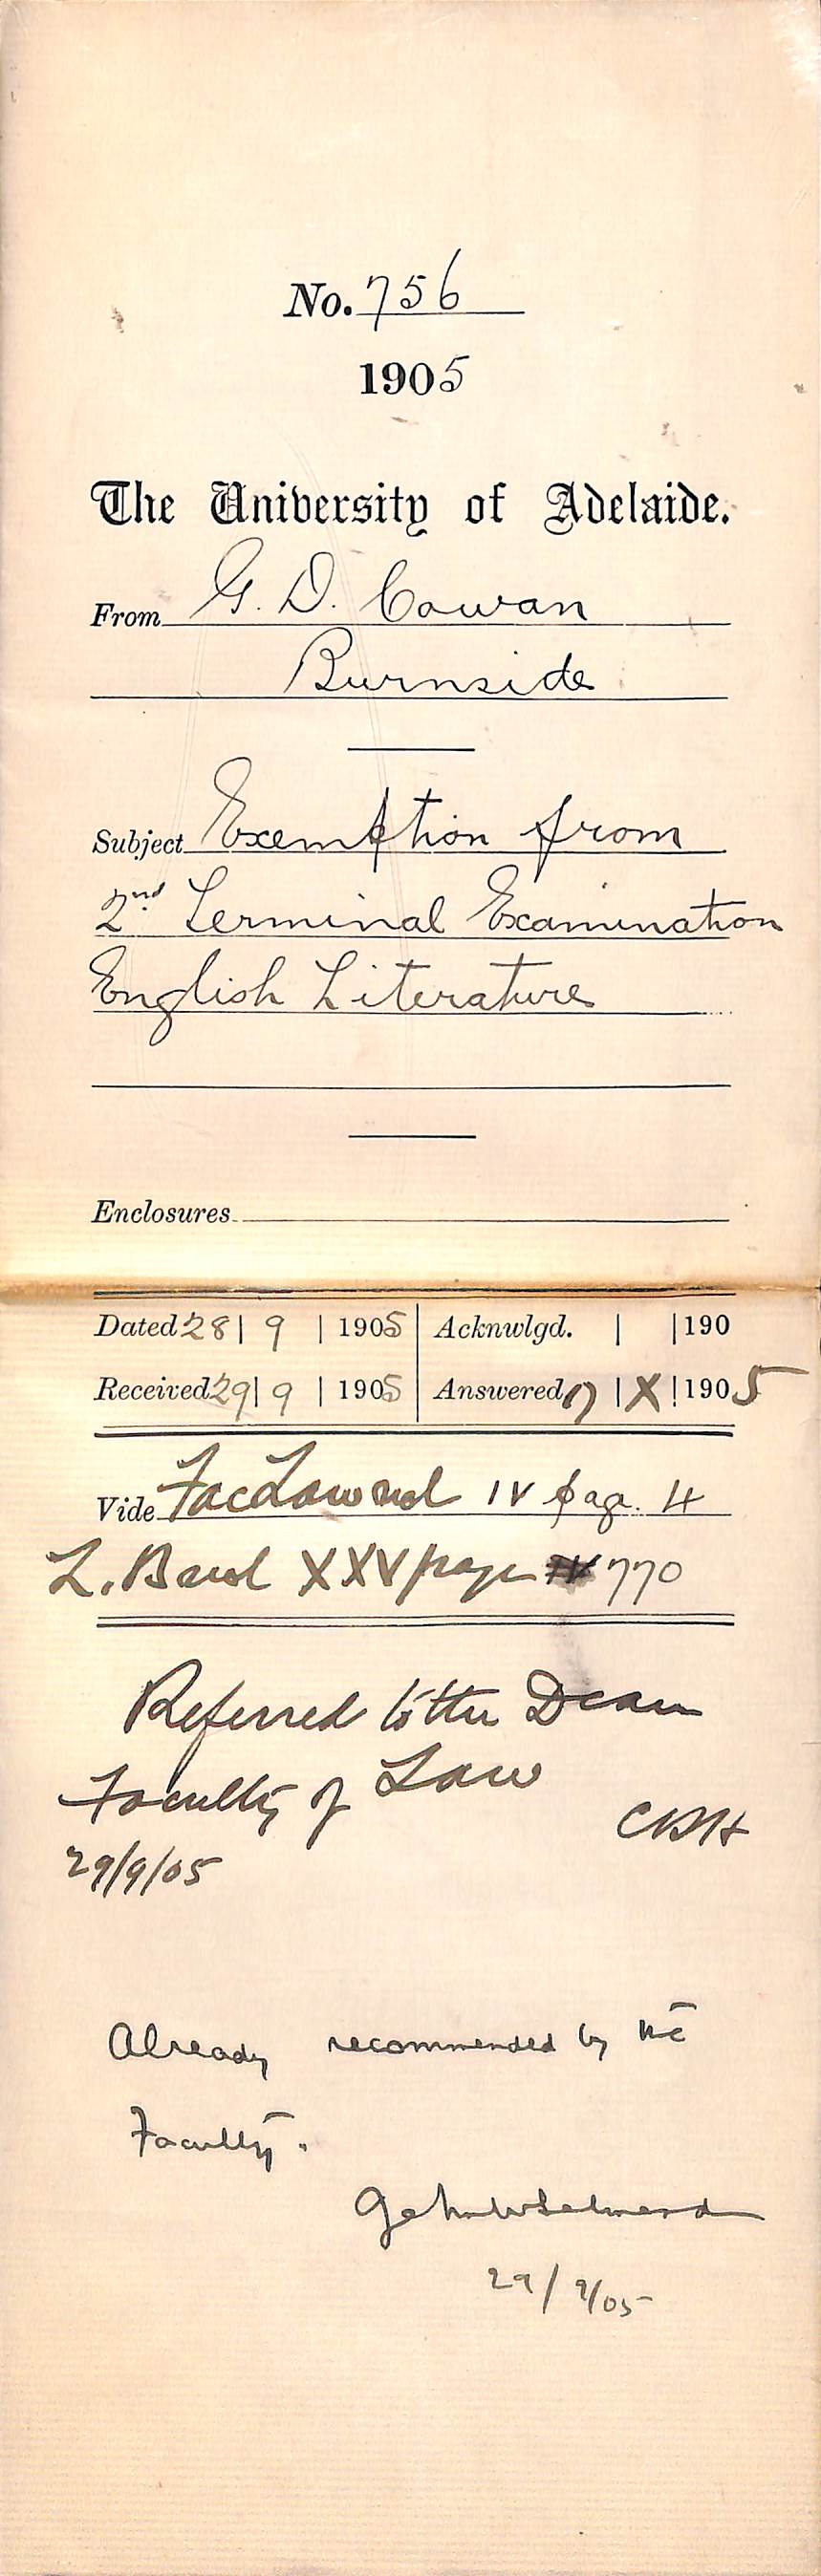 No. 756
1905
The University of Adelaide.
From G. D. Cowan
Burnside
Subject Exemption from
2nd Terminal Examination
English Literature
Enclosures
Dated 28 | 9 | 1905 | Acknwlgd. | | 190
Received 29 | 9 | 1905 | Answered 17 | X | 1905
Vide Fac Law IV page 4
L. Book XXV page 770
Referred to the Dean
Faculty of Law
29/9/05
Already recommended by the
Faculty.
29/9/05